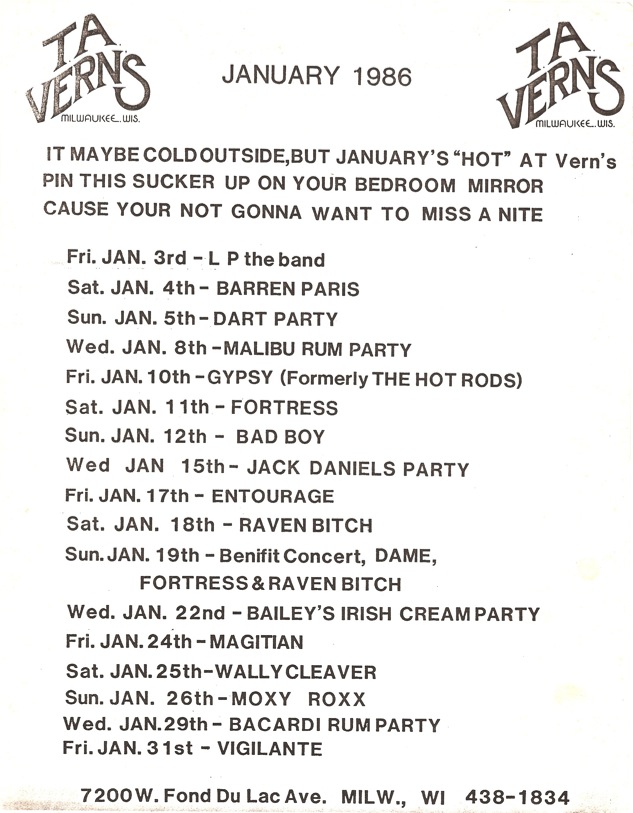 TA
VERNS
MILWAUKEE...WIS.
JANUARY 1986
TA
VERNS
MILWAUKEE...WIS.
IT MAYBE COLD OUTSIDE,BUT JANUARY'S "HOT" AT Vern's
PIN THIS SUCKER UP ON YOUR BEDROOM MIRROR
CAUSE YOUR NOT GONNA WANT TO MISS A NITE
Fri. JAN. 3rd - L P the band
Sat. JAN. 4th - BARREN PARIS
Sun. JAN. 5th - DART PARTY
Wed. JAN. 8th - MALIBU RUM PARTY
Fri. JAN. 10th - GYPSY (Formerly THE HOT RODS)
Sat. JAN. 11th - FORTRESS
Sun. JAN. 12th - BAD BOY
Wed JAN 15th - JACK DANIELS PARTY
Fri. JAN. 17th - ENTOURAGE
Sat. JAN. 18th - RAVEN BITCH
Sun. JAN. 19th - Benifit Concert, DAME,
FORTRESS & RAVEN BITCH
Wed. JAN. 22nd - BAILEY'S IRISH CREAM PARTY
Fri. JAN. 24th - MAGITIAN
Sat. JAN. 25th - WALLY CLEAVER
Sun. JAN. 26th - MOXY ROXX
Wed. JAN. 29th - BACARDI RUM PARTY
Fri. JAN. 31st - VIGILANTE
7200 W. Fond Du Lac Ave. MILW., WI 438-1834